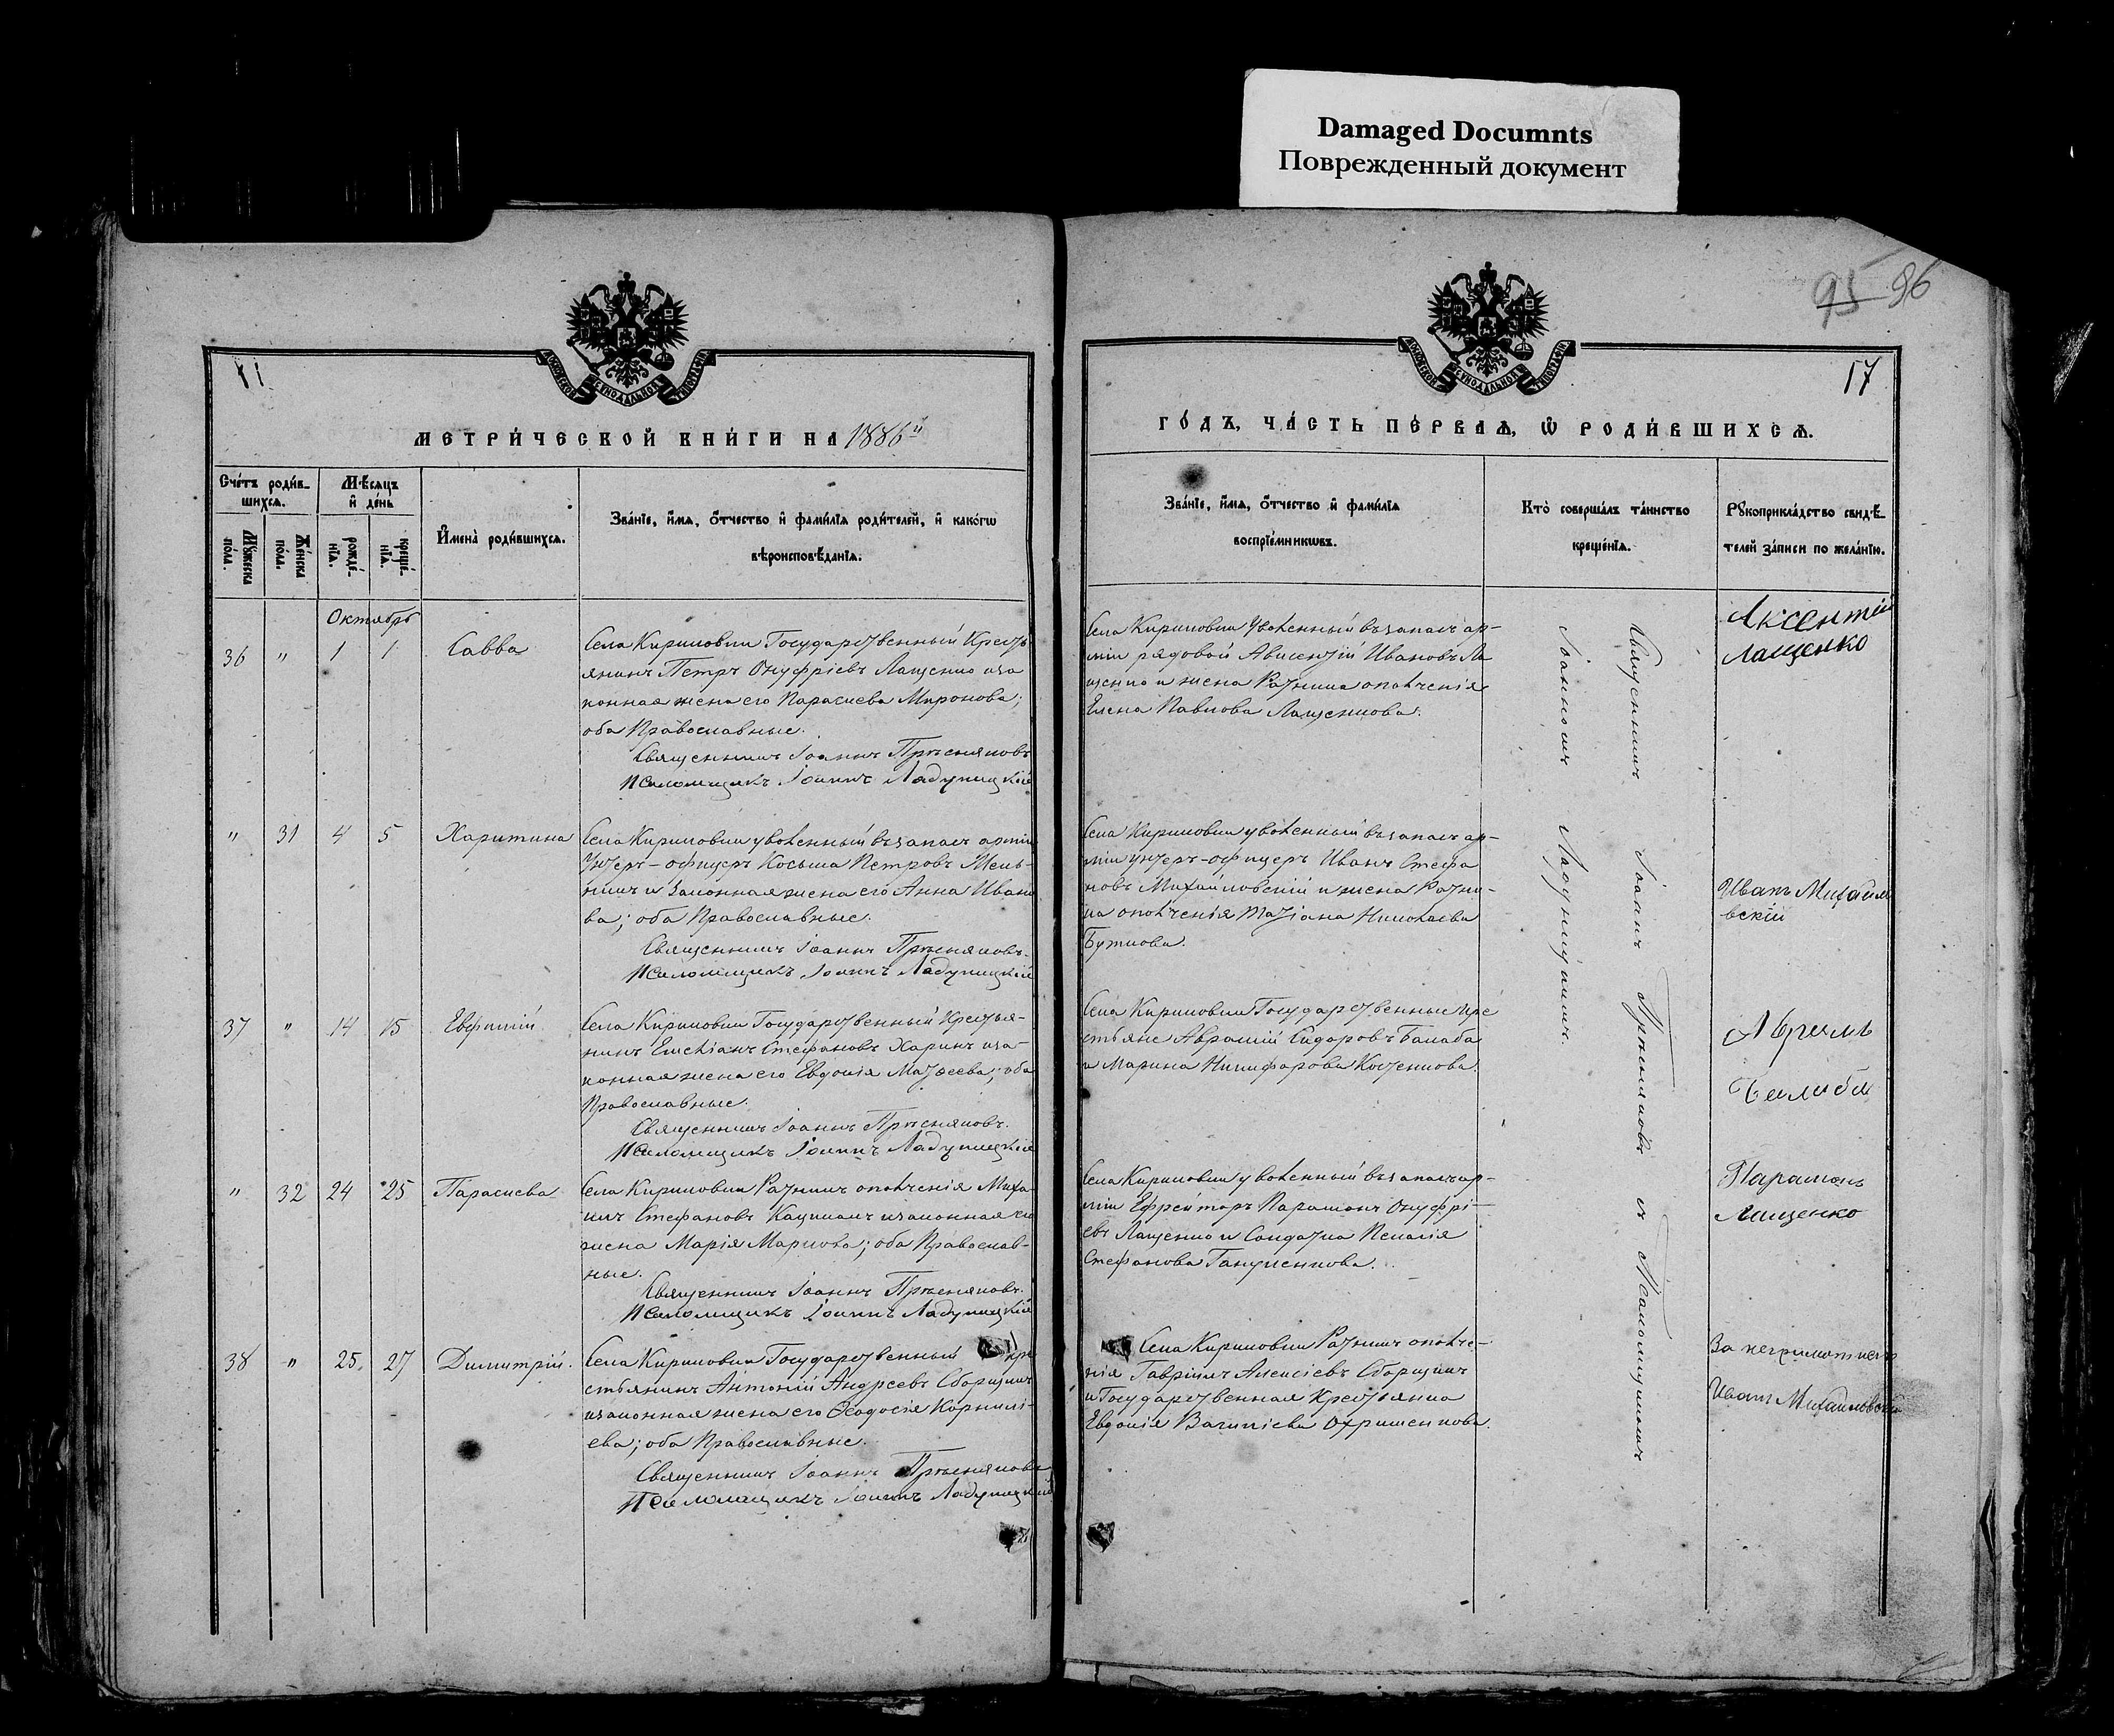 Damaged Documnts
Поврежденный документ
95 96
17
МОСКОВСКОЙ СѴНОДАЛЬНОЙ ТИПОГРАФІИ
МЕТРИ́ЧЕСКОЙ КНИ́ГИ НА 1886й
Сче́тъ роди́в-
шихсѧ.
Мꙋ́жеска по́ла.
Же́нска по́ла.
Мѣ́сѧцъ
и҆ де́нь
рожде́-
нїѧ.
креще́-
нїѧ.
И҆мена̀ роди́вшихсѧ.
Зва́нїе, и҆́мѧ, ѻ҆́тчество и҆ фамі́лїѧ роди́телей, и҆ како́гѡ
вѣроисповѣ́данїѧ.
Октябрь
36 " 1 1 Савва
Села Кириловки Государственный Кресть
янинъ Петръ Онуфріевъ Лащенко и за
конная жена его Параскева Миронова;
оба Православные.
Священникъ Іоаннъ Прѣсняковъ
Псаломщикъ Іоаннъ Ладуницкій
" 31 4 5 Харитина
Села Кириловки уволенный въ запасъ арміи
Унтеръ-офицеръ Косьма Петровъ Мель-
никъ и законная жена его Анна Ивано
ва; оба Православные.
Священникъ Іоаннъ Прѣсняковъ.
Псаломщикъ Іоаннъ Ладуницкій
37 " 14 15 Евфимій
Села Кириловки Государственный Крестья-
нинъ Емеліанъ Стефановъ Харинъ и за-
конная жена его Евдокія Матѳеева; оба
Православные.
Священникъ Іоаннъ Прѣсняковъ.
Псаломщикъ Іоаннъ Ладуницкій
" 32 24 25 Параскева
Села Кириловки Ратникъ ополченія Миха-
илъ Стефановъ Кацманъ и законная его
жена Марія Маркова; оба Православ-
ные.
Священникъ Іоаннъ Прѣсняковъ.
Псаломщикъ Іоаннъ Ладуницкій
38 " 25 27 Димитрій.
Села Кириловки Государственный кре
стьянинъ Антоній Андреевъ Сборщикъ
и законная жена его Ѳеодосія Корнилі-
ева; оба Православные.
Священникъ Іоаннъ Прѣсняковъ
Псаломщикъ Іоаннъ Ладуницкій
ГО́ДЪ, ЧА́СТЬ ПЕ́РВАѦ, Ѽ РОДИ́ВШИХСѦ.
Зва́нїе, и҆́мѧ, ѻ҆́тчество и҆ фамі́лїѧ
воспрїе́мникѡвъ.
Кто̀ соверша́лъ та́инство
креще́нїѧ.
Рꙋкоприкла́дство свидѣ́-
телей за́писи по жела́нїю.
Села Кириловки Уволенный въ запасъ ар-
міи рядовой Авксентій Ивановъ Ла
щенко и жена Ратника ополченія
Елена Павлова Лащенкова.
Аксентій
Лащенко
Села Кириловки уволенный въ запасъ ар-
міи унтеръ-офицеръ Иванъ Стефа
новъ Михайловскій и жена Ратни-
ка ополченія Татіана Николаева
Буткова.
Иванъ Михайло
вскій
Села Кириловки Государственные Кре
стьяне Аврамій Сидоровъ Балаба
и Марина Никифорова Костенкова.
Абрамъ
Балаба
Села Кириловки уволенный въ запасъ ар-
міи Ефрейторъ Парамонъ Онуфрі-
евъ Лащенко и Солдатка Пелагія
Стефанова Ганусенкова.
Парамонъ
Лащенко
Села Кириловки Ратникъ ополче-
нія Гавріилъ Алексіевъ Сборщикъ
и Государственная Крестьянка
Евдокія Василіева Охрименкова.
За неграмотнаго
Иванъ Михайловскій
Священникъ Іоаннъ Прѣсняковъ съ Псаломщикомъ
Іоанномъ Ладуницкимъ.